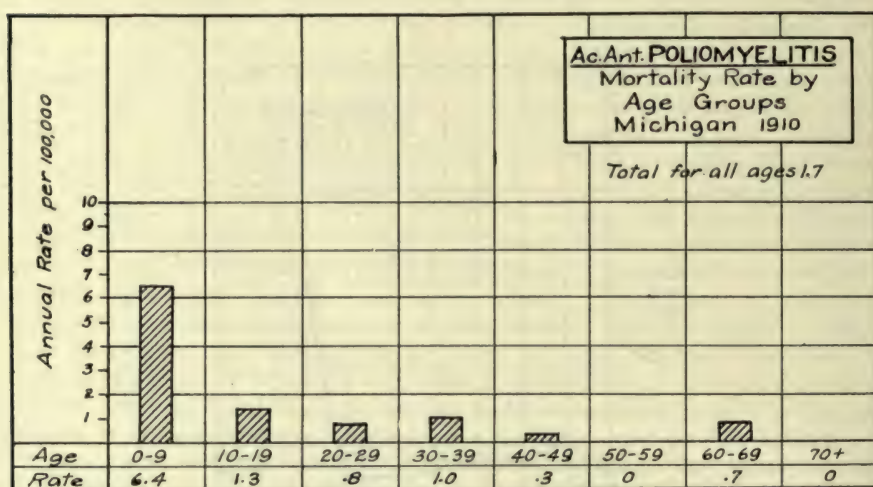 Ac. Ant. POLIOMYELITIS
Mortality Rate by
Age Groups
Michigan 1910
Total for all ages 1.7
Annual Rate per 100,000
10
9
8
7
6
5
4
3
2
1
Age 0-9 10-19 20-29 30-39 40-49 50-59 60-69 70+
Rate 6.4 1.3 .8 1.0 .3 0 .7 0